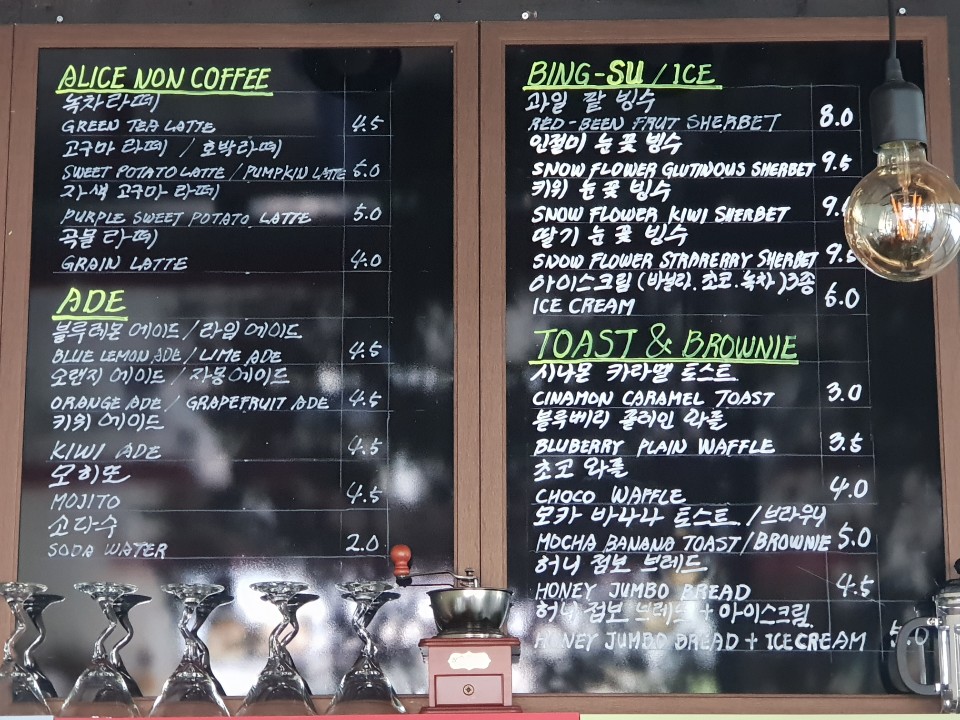 ALICE NON COFFEE
녹차라떼
GREEN TEA LATTE 4.5
고구마 라떼 / 호박라떼
SWEET POTATO LATTE / PUMPKIN LATTE 5.0
자색 고구마 라떼
PURPLE SWEET POTATO LATTE 5.0
곡물 라떼
GRAIN LATTE 4.0
ADE
블루레몬 에이드 / 라임 에이드
BLUE LEMON ADE / LIME ADE 4.5
오렌지 에이드 / 자몽 에이드
ORANGE ADE / GRAPEFRUIT ADE 4.5
키위 에이드
KIWI ADE 4.5
모히또
MOJITO 4.5
소다수
SODA WATER 2.0
BING-SU / ICE
과일 팥 빙수
RED-BEEN FRUT SHERBET 8.0
인절미 눈 꽃 빙수
SNOW FLOWER GLUTINOUS SHERBET 9.5
키위 눈 꽃 빙수
SNOW FLOWER KIWI SHERBET
딸기 눈 꽃 빙수
SNOW FLOWER STRARERRY SHERBET 9.5
아이스크림 (바닐라. 초코. 녹차)3종
ICE CREAM 6.0
TOAST & BROWNIE
시나몬 카라멜 토스트
CINAMON CARAMEL TOAST 3.0
블루베리 플레인 와플
BLUBERRY PLAIN WAFFLE 3.5
초코 와플
CHOCO WAFFLE 4.0
모카 바나나 토스트 / 브라우니
MOCHA BANANA TOAST / BROWNIE 5.0
허니 점보 브레드
HONEY JUMBO BREAD 4.5
허니 점보 브레드 + 아이스크림
HONEY JUMBO BREAD + ICECREAM 5.0